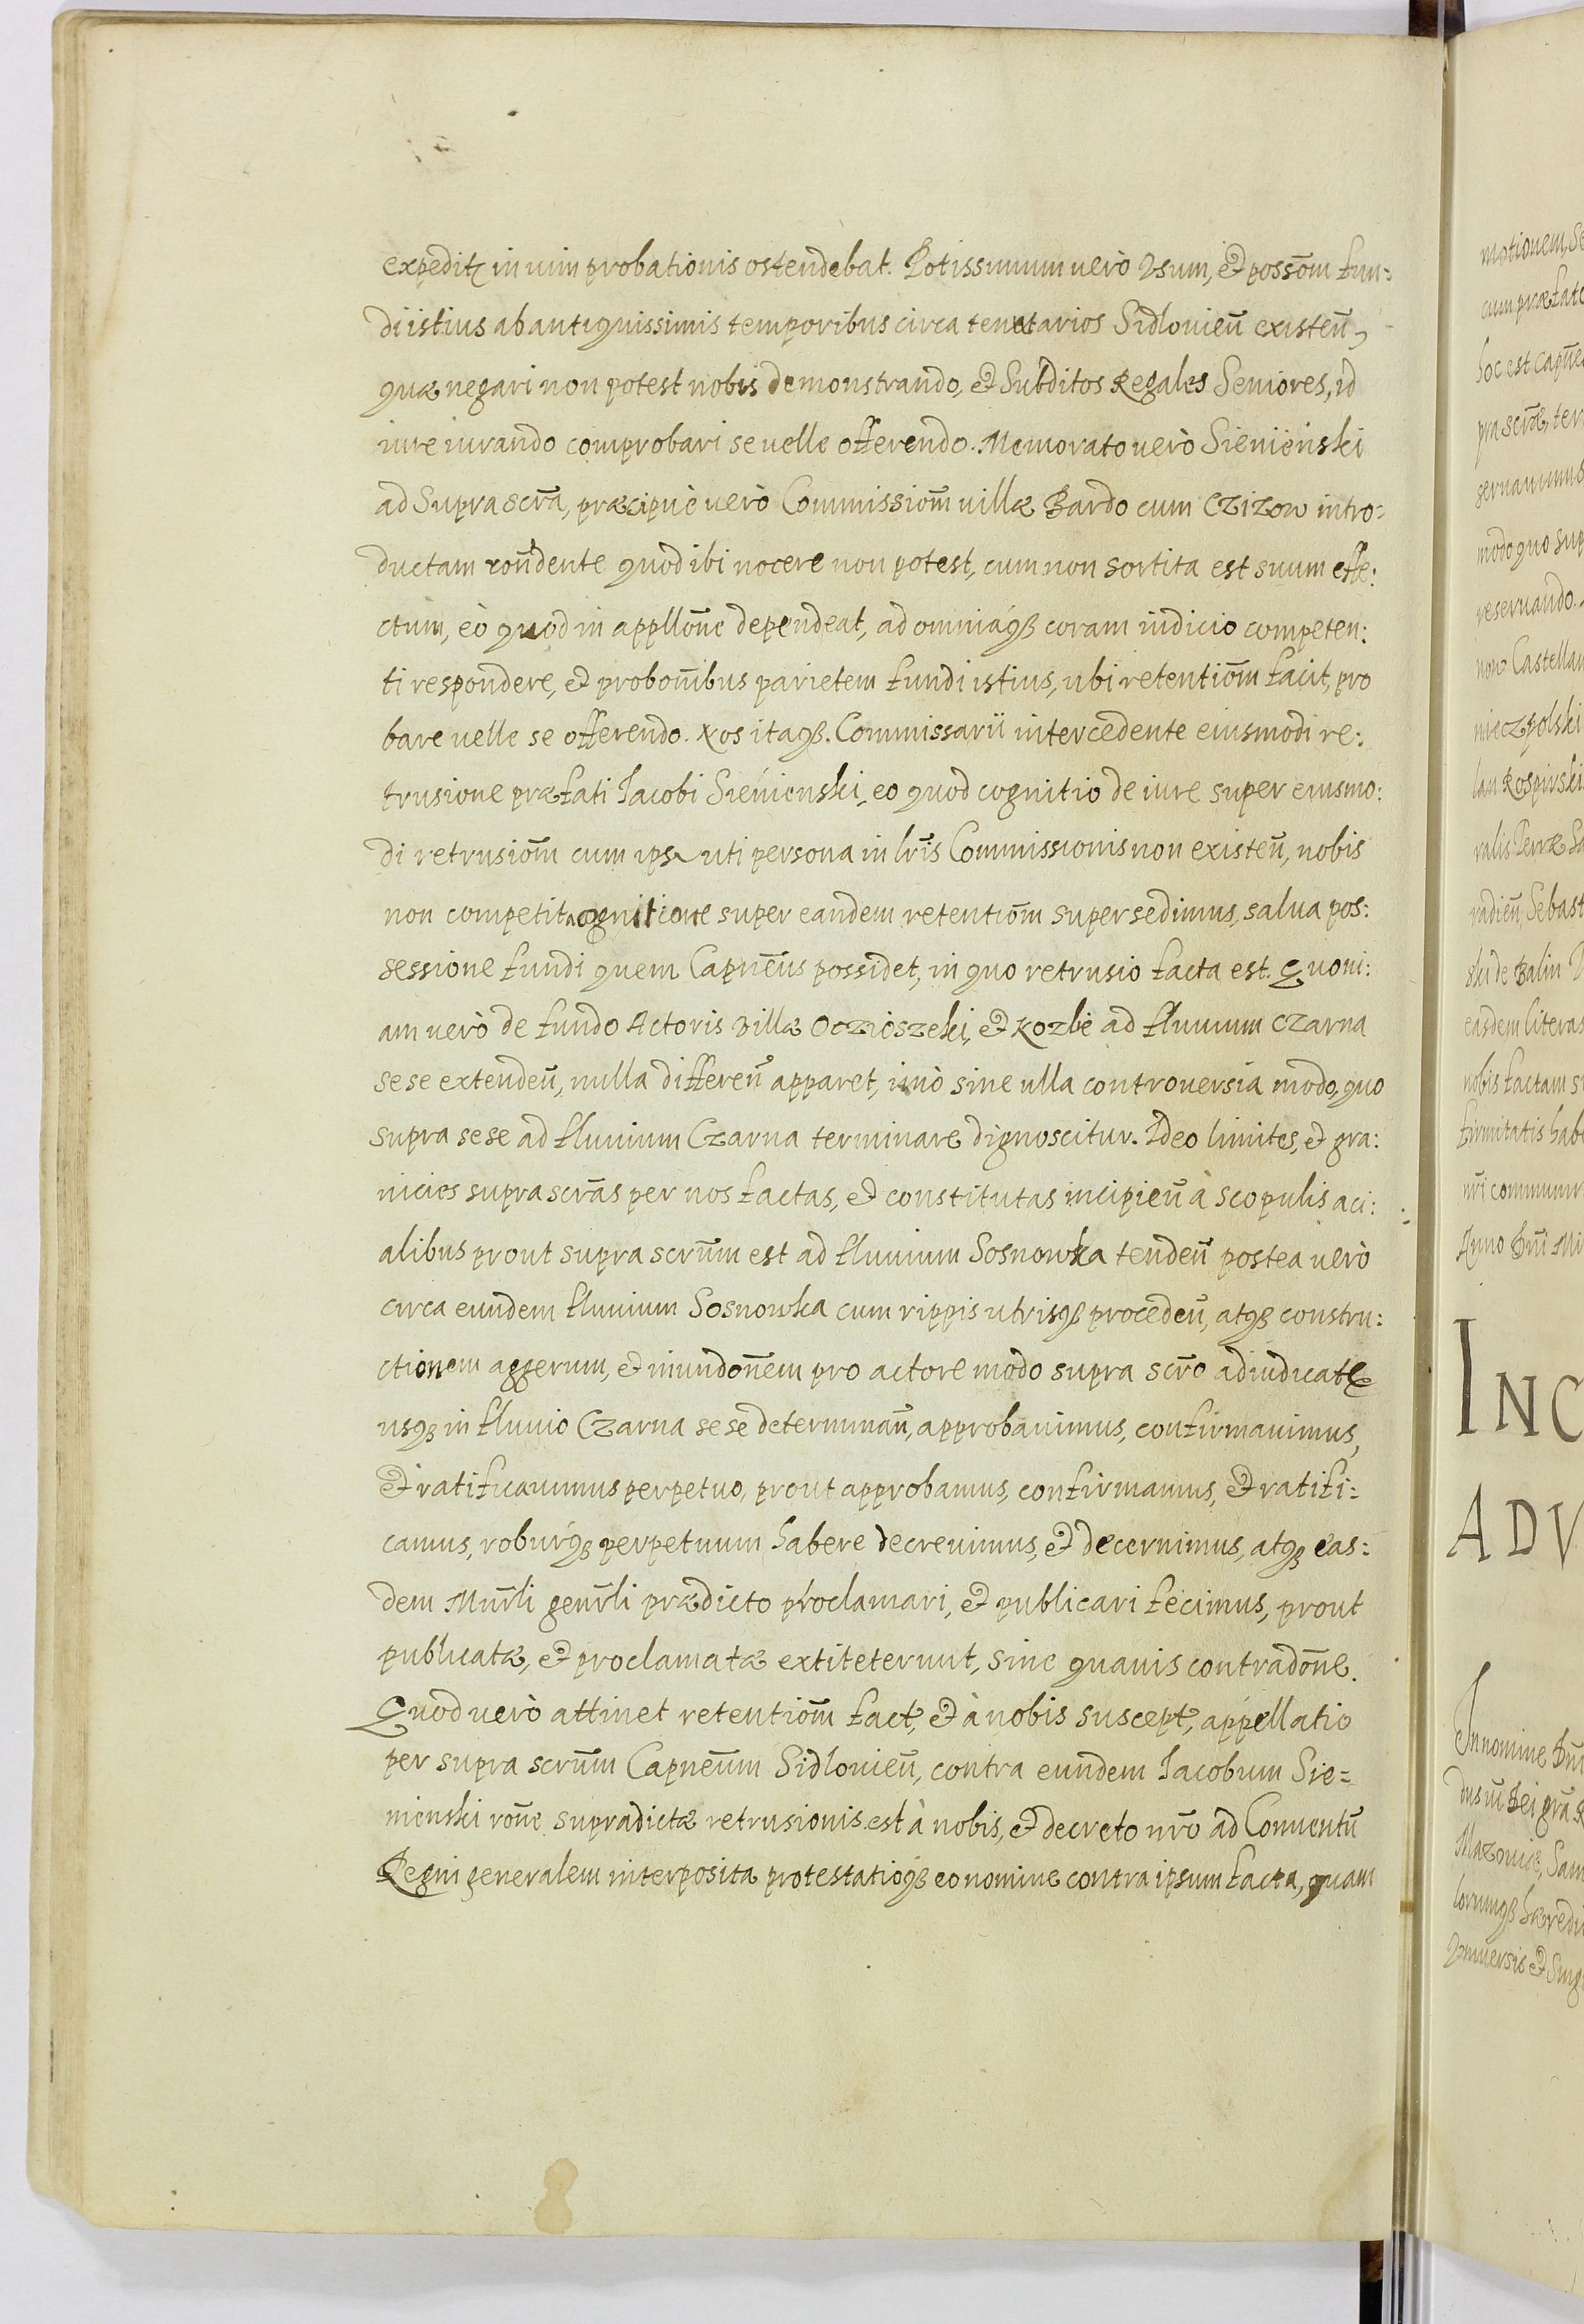 expeditȝ in uim probationis ostendebat. Potissimum uerò Vsum, et possom̄ fun=
di istius ab antiquissimis temporibus circa tenutarios Sidlouien̄ existen̄,
quæ negari non potest nobis demonstrando, et Subditos Regales Seniores, id
iure iurando comprobari se uelle offerendo. Memorato uerò Sienieński
ad Suprascrā, præcipuè uerò Commissiom̄ uillæ Bardo cum Czizow intro=
ductam ron̄dente quod ibi nocere non potest, cum non sortita est suum effe:
ctum, eò quod in appllōne dependeat, ad omniaq̃ꝫ coram iudicio competen:
ti respondere, et probōnibus parietem fundi istius, ubi retentiom̄ facit, pro
bare uelle se offerendo. Nos itaqꝫ. Commissarii intercedente eiusmodi re:
trusione præfati Iacobi Sieńienski, eo quod cognitio de iure super eiusmo:
di retrusiom̄ cum ipso uti persona in lrīs Commissionis non existen̄, nobis
non competit cognitione super eandem retentiom̄ supersedimus, salua pos:
sessione fundi quem Capnēus possidet, in quo retrusio facta est. Quoni:
am uerò de fundo Actoris Villæ Oczioszeki, et Kozlie ad fluuium Czarna
sese extenden̄, nulla differen̄ apparet, imò sine ulla controuersia modo, quo
supra sese ad fluuium Czarna terminare dignoscitur. Ideo limites, et gra:
nicies suprascrās per nos factas, et constitutas incipien̄ à scopulis aci:
alibus prout supra scrūm est ad fluuium Sosnowka tenden̄ postea uerò
circa eundem fluuium Sosnowka cum rippis utrisqꝫ proceden̄, atqꝫ constru:
ctionem aggerum, et inundōnem pro actore modo supra scrō adiudicatæ
usqꝫ in fluuio Czarna sese determinan̄, approbauimus, confirmauimus,
et ratificauimus perpetuo, prout approbamus, confirmamus, et ratifi:
camus, roburq̃ꝫ perpetuum habere decreuimus, et decernimus, atqꝫ eas:
dem Mnrli genrli prædicto proclamari, et publicari fecimus, prout
publicatæ, et proclamatæ extiteterunt, sine quauis contradōne.
Quod uerò attinet retentiom̄ fact, et à nobis suscept, appellatio
per supra scrūm Capnēum Sidlouien̄, contra eundem Iacobum Sie=
nienski rōne supradictæ retrusionis est à nobis, et decreto nrō ad Conuentū
Regni generalem interposita protestatioqꝫ eo nomine contra ipsum facta, quam
motionem, Se
cum præfato
hoc est Capne
pra scræ, ter
seruauimus
modo quo sup
reseruando.
non Castellan
lan Rospirski
ralis Terræ Sa
radien̄, Sebast
ski de Balin
easdem literas
nobis factam su
firmitatis habe
nrī commun
Anno Dnī Mi
INC
ADV
In nomine Dn̄i
dus III Dei grā R
Mazouiæ, Sam
lorumqꝫ hæredi
Vniuersis et Sing